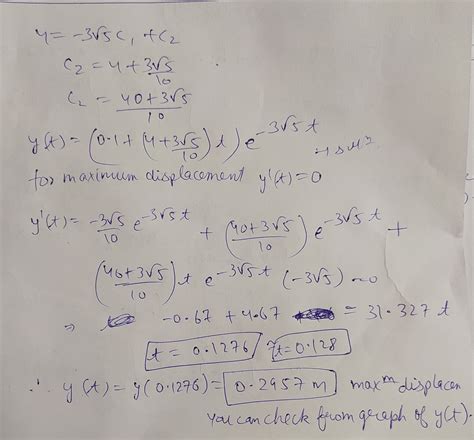 4 = -3√5 C₁ + C₂
C₂ = 4 + 3√5/10
C₂ = (40+3√5)/10
y(t) = (0.1 + (4 + 3√5/10) t) e^(-3√5 t)
for maximum displacement y'(t) = 0
y'(t) = -3√5/10 e^(-3√5 t) + ((40+3√5)/10) e^(-3√5 t) +
((40+3√5)/10) t e^(-3√5 t) (-3√5) = 0
⇒ -0.67 + 4.67 = 31.327 t
t = 0.1276 ≈ t = 0.128
∴ y(t) = y(0.1276) = 0.2957 m maxᵐ displacen
You can check from graph of y(t).